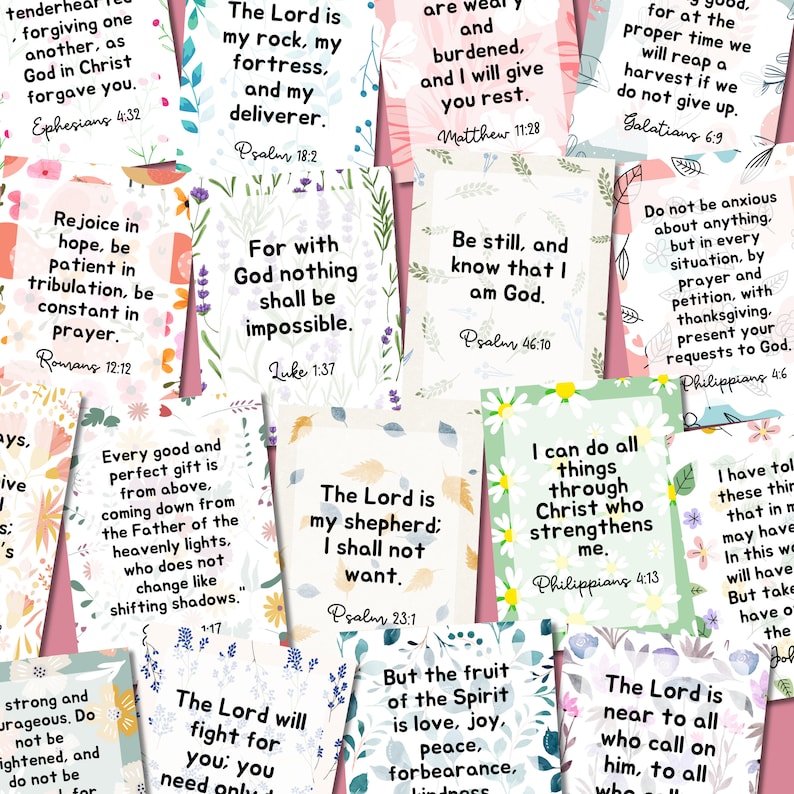 tenderhearted
, forgiving one
another, as
God in Christ
forgave you.
Ephesians 4:32
The Lord is
my rock, my
fortress,
and my
deliverer.
Psalm 18:2
are weary
and
burdened,
and I will give
you rest.
Matthew 11:28
for at the
proper time we
will reap a
harvest if we
do not give up.
Galatians 6:9
Rejoice in
hope, be
patient in
tribulation, be
constant in
prayer.
Romans 12:12
For with
God nothing
shall be
impossible.
Luke 1:37
Be still, and
know that I
am God.
Psalm 46:10
Do not be anxious
about anything,
but in every
situation, by
prayer and
petition, with
thanksgiving,
present your
requests to God.
Philippians 4:6
Every good and
perfect gift is
from above,
coming down from
the Father of the
heavenly lights,
who does not
change like
shifting shadows."
1:17
The Lord is
my shepherd;
I shall not
want.
Psalm 23:1
I can do all
things
through
Christ who
strengthens
me.
Philippians 4:13
I have tol
these thin
that in m
may have
In this wo
will have
But take
have o
the
Joh
strong and
urageous. Do
not be
ightened, and
do not be
The Lord will
fight for
you; you
need only
But the fruit
of the Spirit
is love, joy,
peace,
forbearance,
kindness
The Lord is
near to all
who call on
him, to all
who call